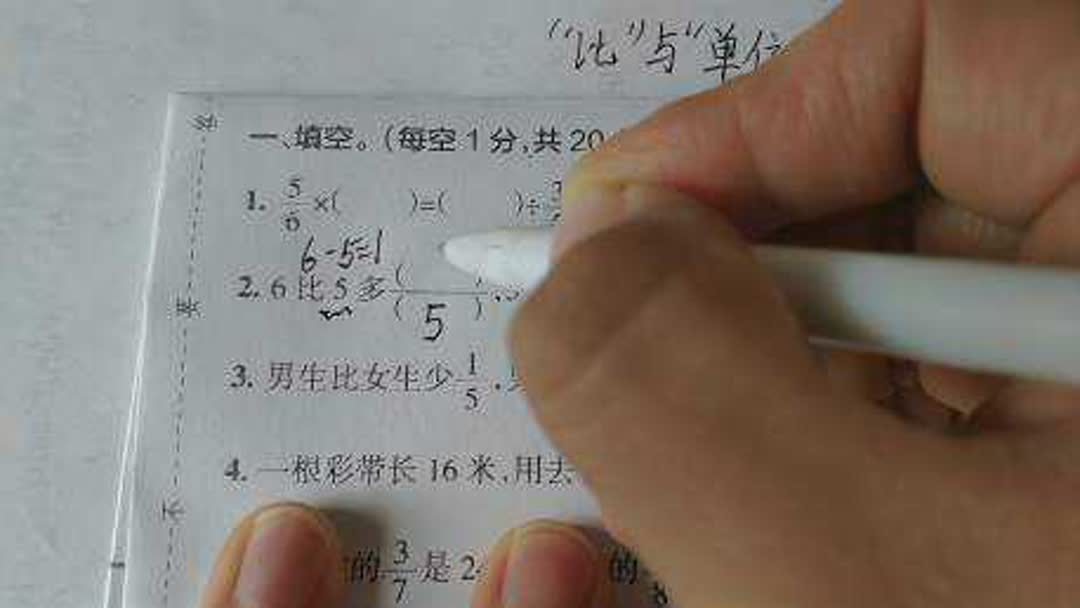 "比"与"单位
一、填空。(每空1分,共20
1. 5/6×(  )=(  )÷
6-5=1
2. 6比5多(  )/( 5 )
3. 男生比女生少1/5,
4. 一根彩带长16米,用去
的3/7是2 的
密
要
不